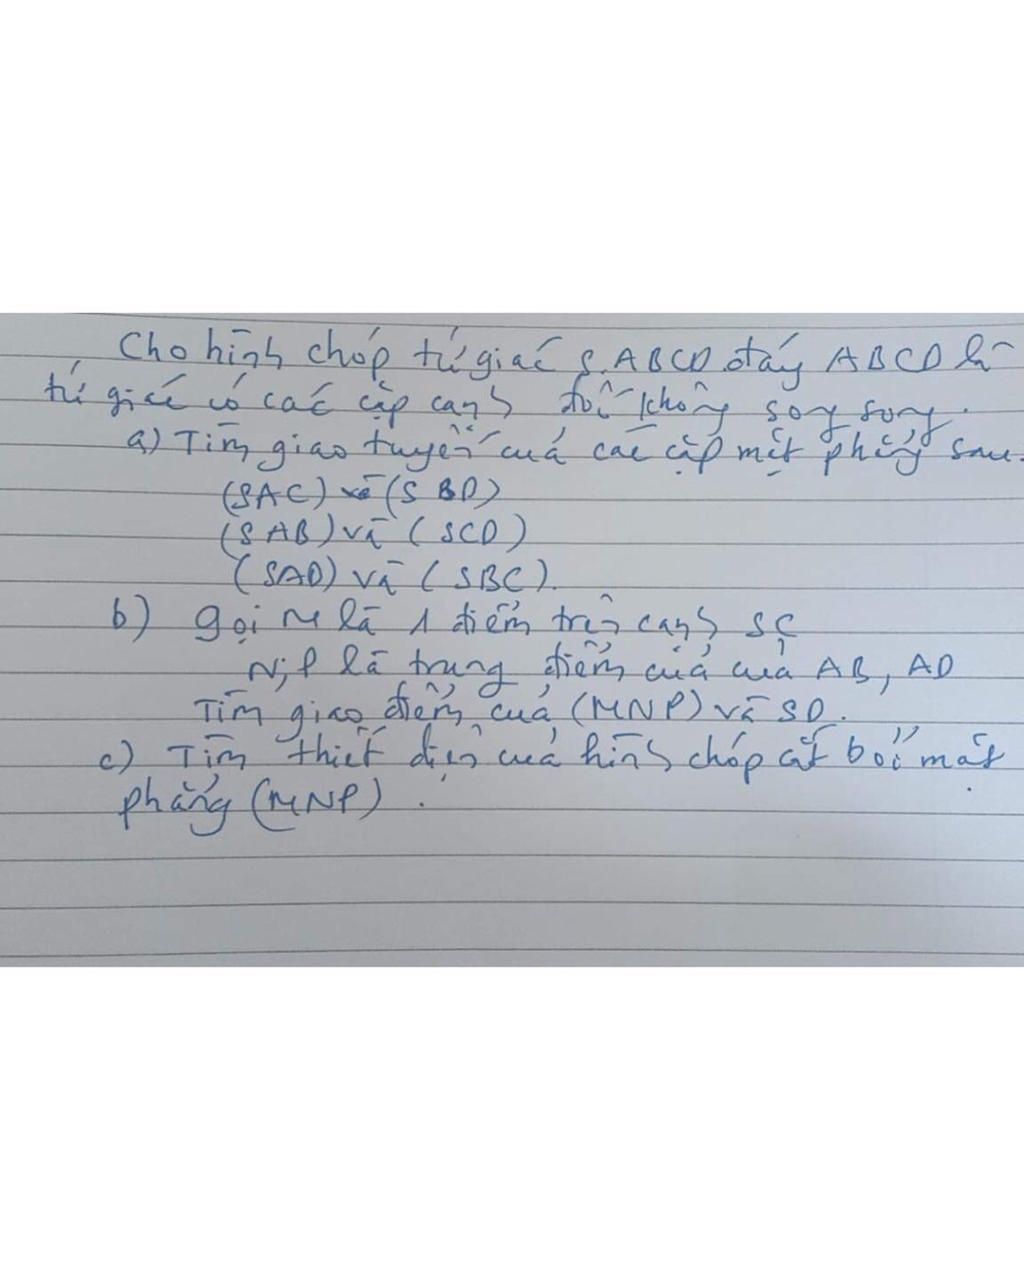 Cho hình chóp tứ giác S.ABCD đáy ABCD là
tứ giác có các cặp cạnh đối không song song.
a) Tìm giao tuyến của các cặp mặt phẳng sau.
(SAC) và (SBD)
(SAB) và (SCD)
(SAD) và (SBC).
b) gọi M là 1 điểm trên cạnh SC
N; P là trung điểm của của AB, AD
Tìm giao điểm của (MNP) và SD.
c) Tìm thiết diện của hình chóp cắt bởi mặt
phẳng (MNP).